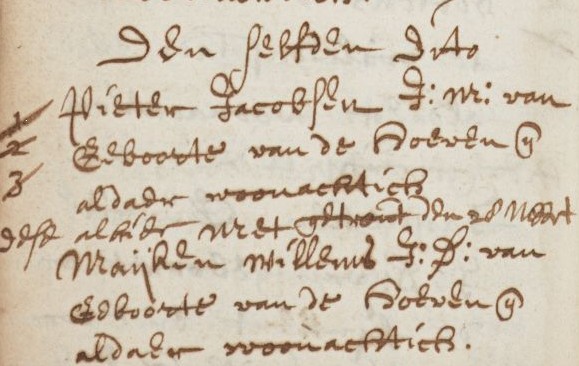 Den selfden dito
1 Pieter Jacobsen J: m: van
2 Geboorte van de Hoeven &
3 aldaer woonachtich
dese alhier met getrout den 28 Meert
Maijken Willems J: D: van
Geboorte van de Hoeven &
aldaer woonachtich.